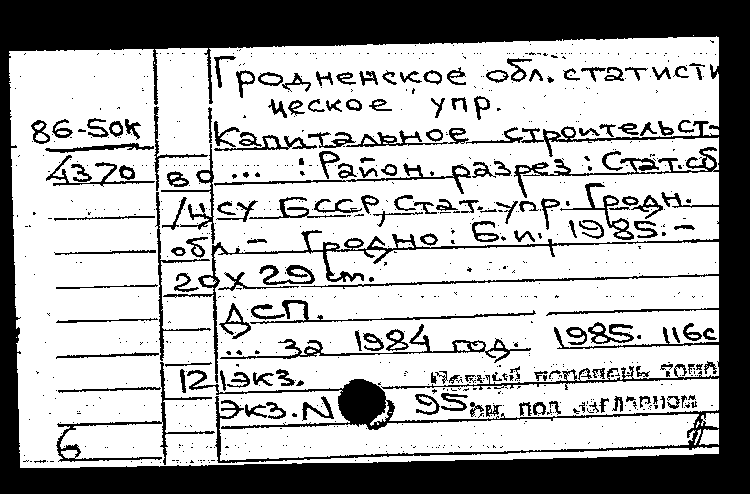 Гродненское обл. статисти
ческое упр.
86-50к
Капитальное строительст-
4370
во ... : Район. разрез : Стат. сб
/ЦСУ БССР, Стат. упр. Гродн.
обл. – Гродно : Б.и., 1985. –
20 х 29 см.
ДСП.
... за 1984 год. 1985. 116с
12 1экз. Полный перечень томо
экз. N 95 см. под заглавном
6